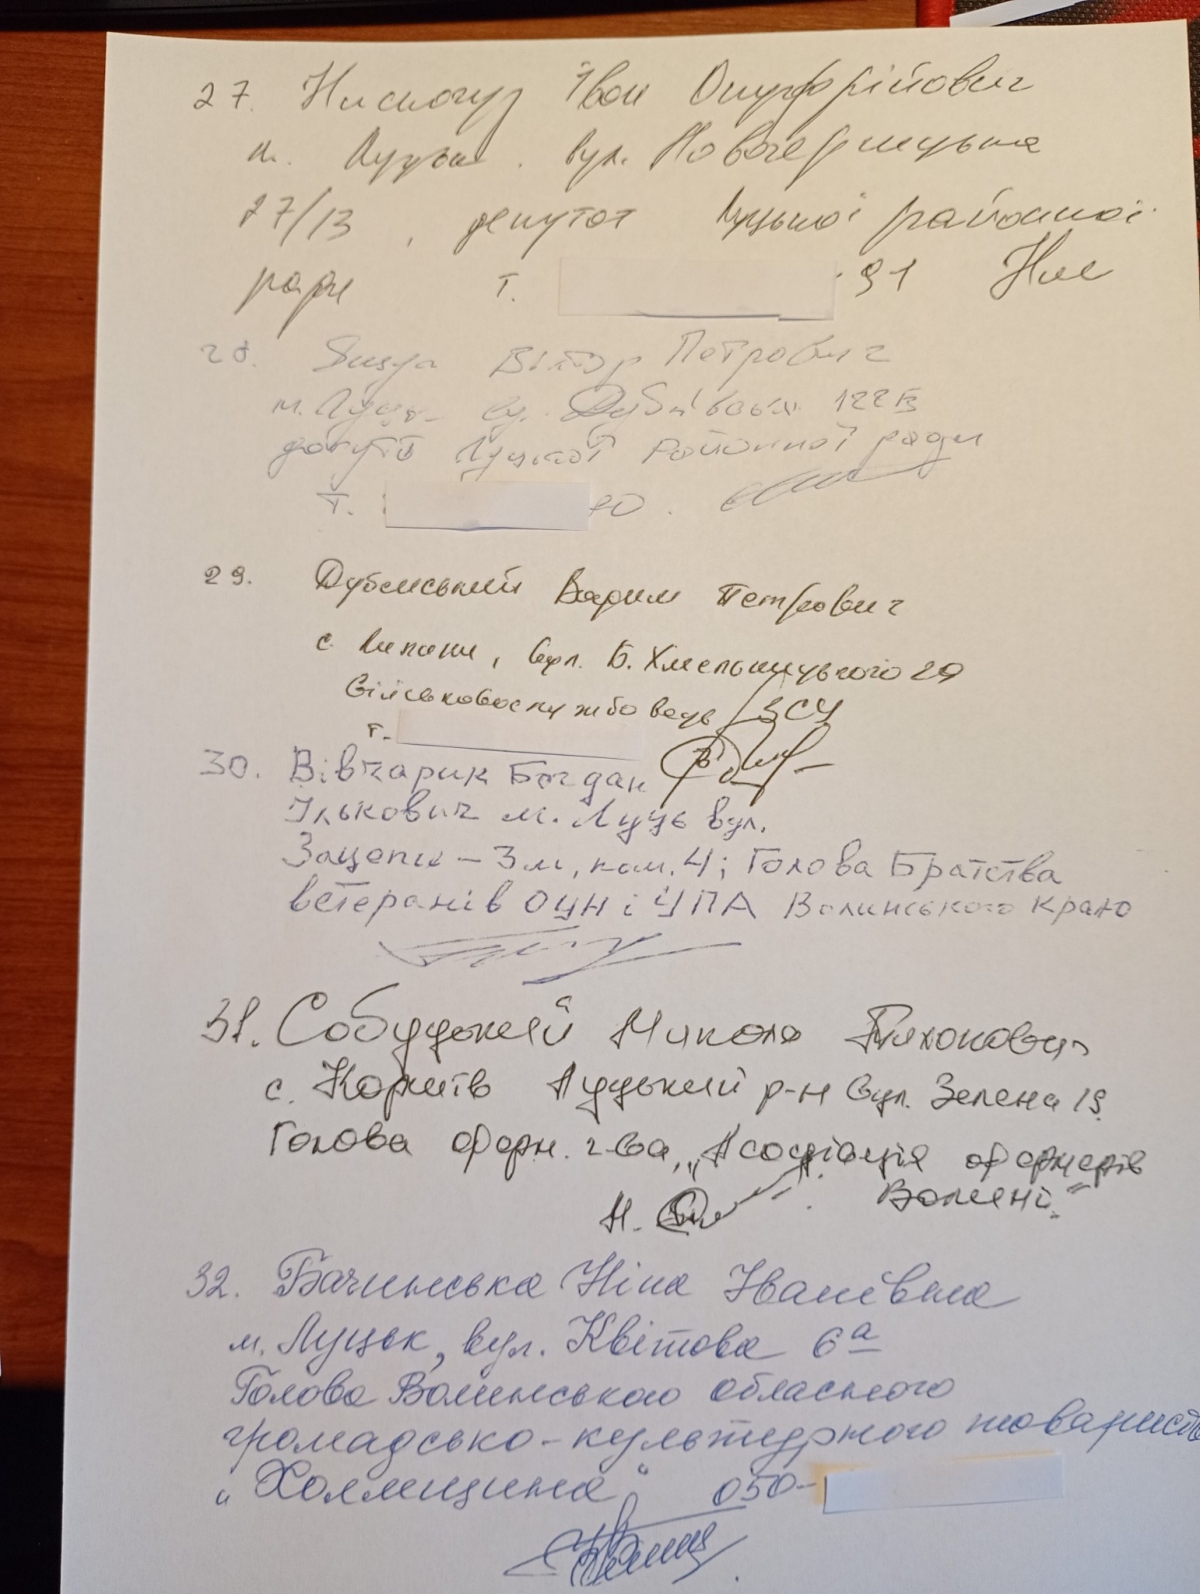 27. Іван Онуфрійович
м. Луцьк. вул. Новочерчицька
27/13, депутат Луцької районної
ради т. 91
28. Віктор Петрович
м. Луцьк вул. Дубнівська 122Б
Луцької районної ради
т. 70.
29. Дубенський Вадим Петрович
с. Липини, вул. Б. Хмельницького 29
військовослужбовець ЗСУ
т.
30. Вівчарик Богдан
Ількович м. Луцьк вул.
Зацепи - 3м, пом. 4; Голова Братства
ветеранів ОУН і УПА Волинського краю
31. Собуцький Микола Тихонович
с. Коршів Луцький р-н вул. Зелена 19
Голова ферм. г-ва, "Асоціація фермерів
Волині"
32. Бачинська Ніна Іванівна
м. Луцьк, вул. Квітова 6а
Голова Волинського обласного
громадсько-культурного товариств
"Холмщина" 050-